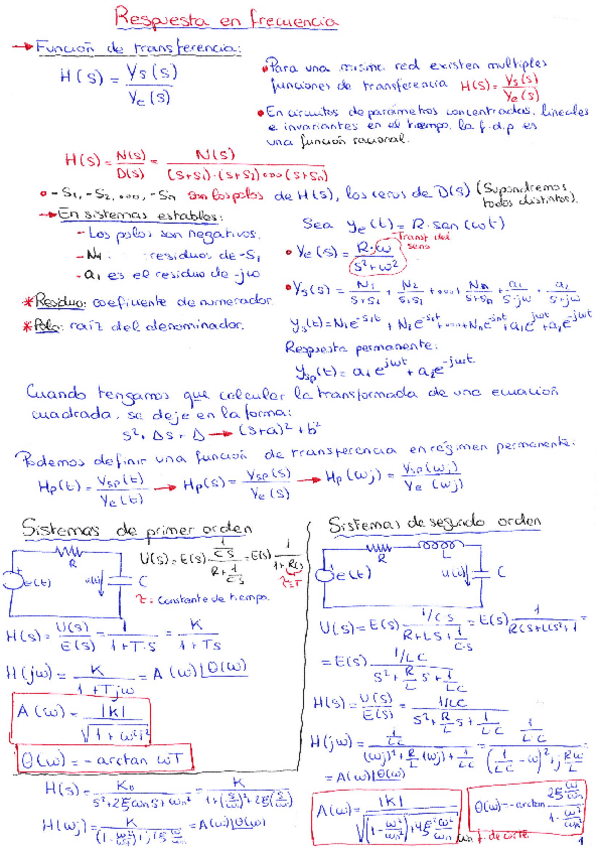 Respuesta en frecuencia
→ Función de transferencia:
H(s) = Ys(s) / Ye(s)
• Para una misma red existen multiples
funciones de transferencia H(s) = Ys(s) / Ye(s)
• En circuitos de parámetros concentrados, lineales
e invariantes en el tiempo, la f.d.p es
una función racional.
H(s) = N(s)/D(s) = N(s) / (s+s1)·(s+s2)ooo(s+sn)
• -s1, -s2, ooo, -sn son los polos de H(s), los ceros de D(s) (Supondremos
todos distintos).
→ En sistemas estables:
- Los polos son negativos.
- N1 residuos de -s1
- a1 es el residuo de jω
* Residuo: coeficiente de numerador.
* Polo: raíz del denominador.
Sea ye(t) = R·sen(ωt)
Transf. del
seno
• Ye(s) = R·ω / s²+ω²
• Ys(s) = N1/s+s1 + N2/s+s2 +ooo+ Nn/s+sn + a1/s-jω + a2/s+jω
ys(t) = N1e^-s1t + N2e^-s2t +ooo+ Nne^-snt + a1e^jωt + a2e^-jωt
Respuesta permanente:
Ysp(t) = a1e^jωt + a2e^-jωt
Cuando tengamos que calcular la transformada de una ecuación
cuadrada, se deje en la forma:
s², Δs, Δ → (s+a)² + b²
Podemos definir una función de transferencia en régimen permanente:
Hp(t) = Ysp(t)/Ye(t) → Hp(s) = Ysp(s)/Ye(s) → Hp(ωj) = Ysp(ωj)/Ye(ωj)
Sistemas de primer orden
R
e(t)
u(t)
C
U(s) = E(s) · 1/Cs / R+1/Cs = E(s) 1/1+RCs
τ=T
τ: Constante de tiempo.
H(s) = U(s)/E(s) = 1/1+T·s = K/1+Ts
H(jω) = K/1+Tjω = A(ω)|θ(ω)
A(ω) = |K| / √1+ω²T²
θ(ω) = -arctan ωT
H(s) = K0 / s²+2ξωns+ωn² = K / 1+(s/ωn)²+2ξ(s/ωn)
H(ωj) = K / (1-ω²/ωn²)+j2ξω/ωn = A(ω)|θ(ω)
Sistemas de segundo orden
R
L
e(t)
u(t)
C
U(s) = E(s) 1/Cs / R+Ls+1/C·s = E(s) 1/RCs+LCs²+1 =
= E(s) 1/LC / s²+R/L s+1/LC
H(s) = U(s)/E(s) = 1/LC / s²+R/L s+1/LC
H(jω) = 1/LC / (ωj)²+R/L(ωj)+1/LC = 1/LC / (1/LC-ω)²+jRω/L
= A(ω)|θ(ω)
A(ω) = |K| / √(1-ω²/ωn²)+4ξ²ω²/ωn²
θ(ω) = -arctan 2ξω/ωn / 1-ω²/ωn²
ωn f. de corte
1